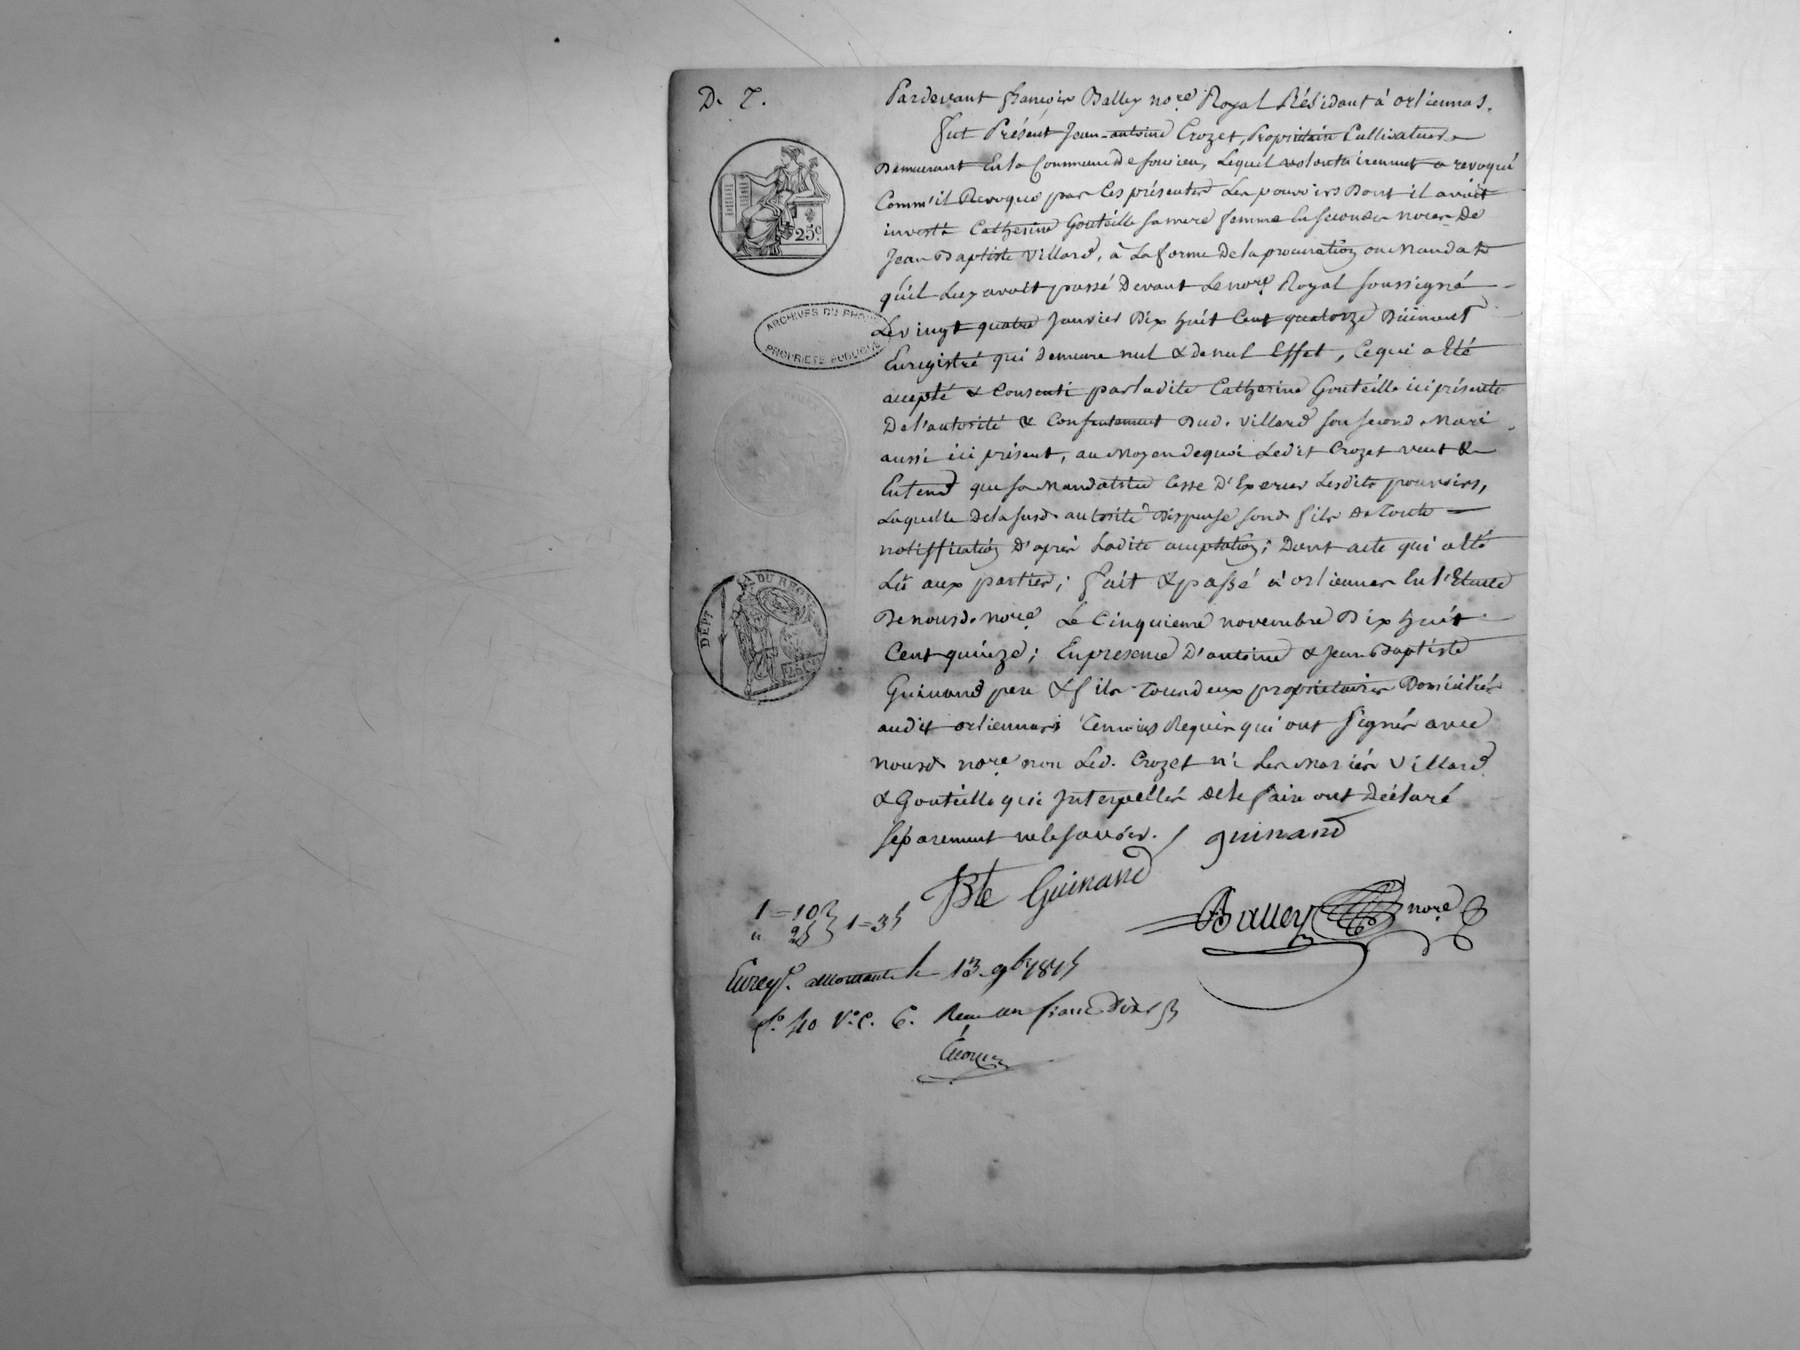 D. T.
Pardevant françois Balley nore Royal Résidant à orliennas.
fut Présent Jean-antoine Crozet, Propriétaire Cultivateur
Demeurant En la Commune de soucieu, Lequel volontairement a revoqué
Comm'il Revoque par Ces présentes Les pouvoirs Dont il avoit
investit Catherine Goutéille sa mere femme En secondes noces De
Jean Baptiste Villard, à La forme De la procuration ou Mandat
qu'il Luy avoit passé Devant Le nore Royal soussigné
Le vingt quatre Janvier Dix huit Cent quatorze Düiment
Enregistré qui Demeure nul & de nul Effet, Ce qui a Eté
accepté & Consenti par ladite Catherine Goutéille ici présente
De l'autorité & Consentement Dud. Villard son second Mari
aussi ici présent, au Moyen de quoi Ledit Crozet veut &
Entend que sa Mandatrice Cesse D'Exercer Lesdits pouvoirs,
Laquelle De la susd. autorité Dispense sond. fils De Toute
notiffication D'après Ladite acceptation; Dont acte qui a Eté
Lü aux parties; fait & passé à orliennas En l'Etude
De nousd. nore. Le Cinquieme novembre Dix huit
Cent quinze; En presence D'antoine & Jean Baptiste
Guinand pere & fils Tous deux propriétaires Domiciliés
audit orliennas Temoins Requis qui ont signés avec
nousd. nore non Led. Crozet ni Les Mariés Villard
& Goutéille qui Interpellés de le faire ont Déclaré
séparement ne le savoir. / guinand
JBte Guinand
Balley nore
25c
ARCHIVES DU RHONE
PROPRIETE PUBLIQUE
DEPT DU RHONE
25C
1 = 10
" 25
1 = 35
Enregt. a Mornant le 13 9bre 1815
fo. 40 Vo. C. 6. Reçu un franc dix c